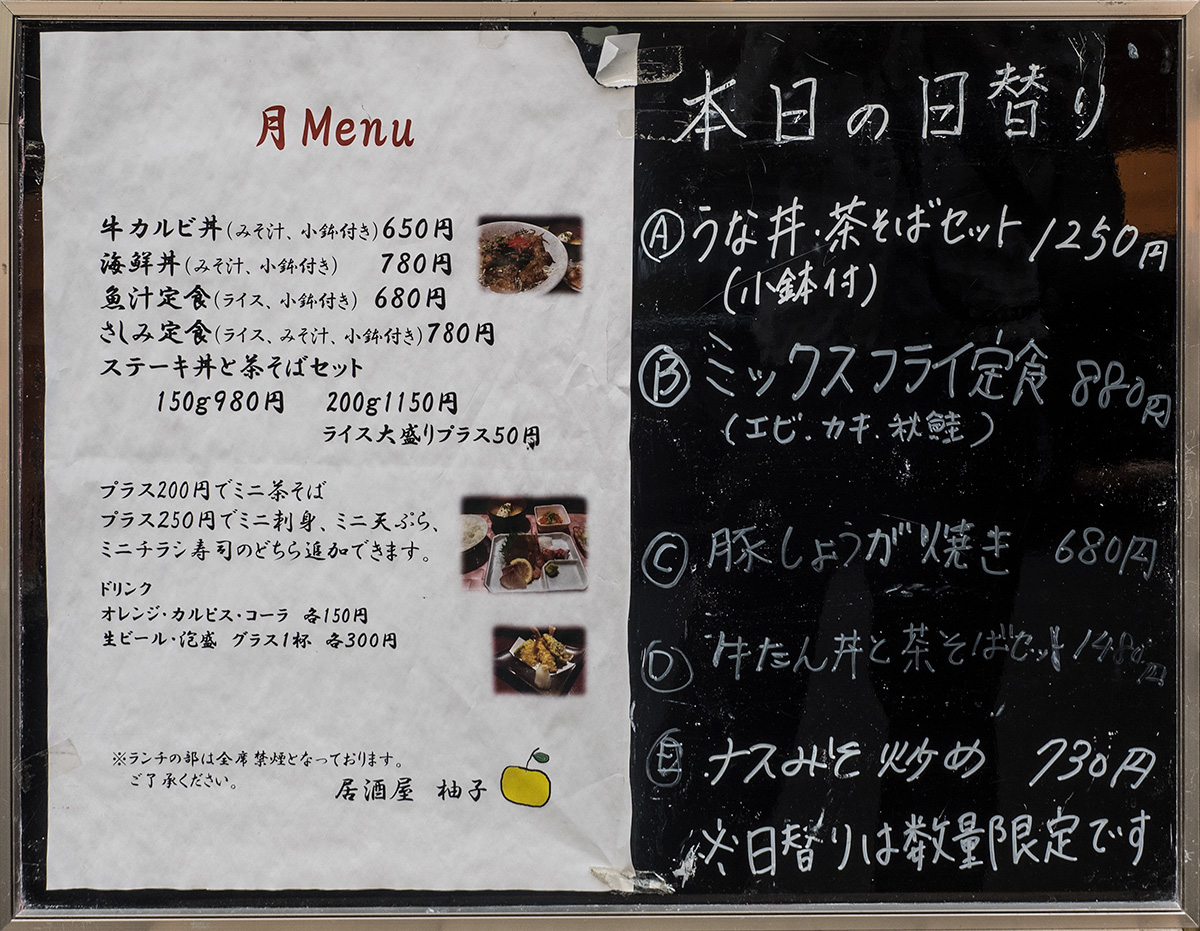 月Menu
牛カルビ丼(みそ汁、小鉢付き)650円
海鮮丼(みそ汁、小鉢付き) 780円
魚汁定食(ライス、小鉢付き) 680円
さしみ定食(ライス、みそ汁、小鉢付き)780円
ステーキ丼と茶そばセット
150g980円 200g1150円
ライス大盛りプラス50円
プラス200円でミニ茶そば
プラス250円でミニ刺身、ミニ天ぷら、
ミニチラシ寿司のどちら追加できます。
ドリンク
オレンジ・カルピス・コーラ 各150円
生ビール・泡盛 グラス1杯 各300円
※ランチの部は全席禁煙となっております。
ご了承ください。
居酒屋 柚子
本日の日替り
Ⓐうな丼・茶そばセット 1250円
(小鉢付)
Ⓑミックスフライ定食 880円
(エビ・カキ・秋鮭)
Ⓒ豚しょうが焼き 680円
Ⓓ牛たん丼と茶そばセット 1480円
Ⓔナスみそ炒め 730円
※日替りは数量限定です